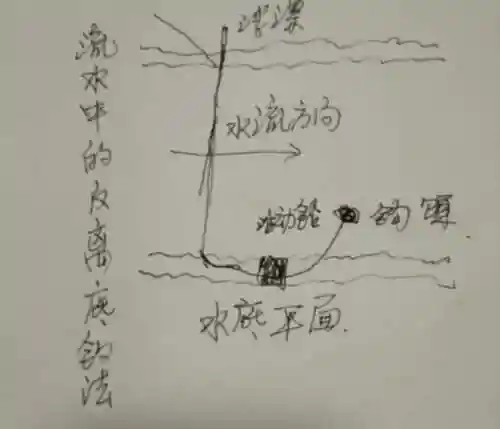 流水中的反离底钓法
浮漂
水流方向
钩饵
水底平面